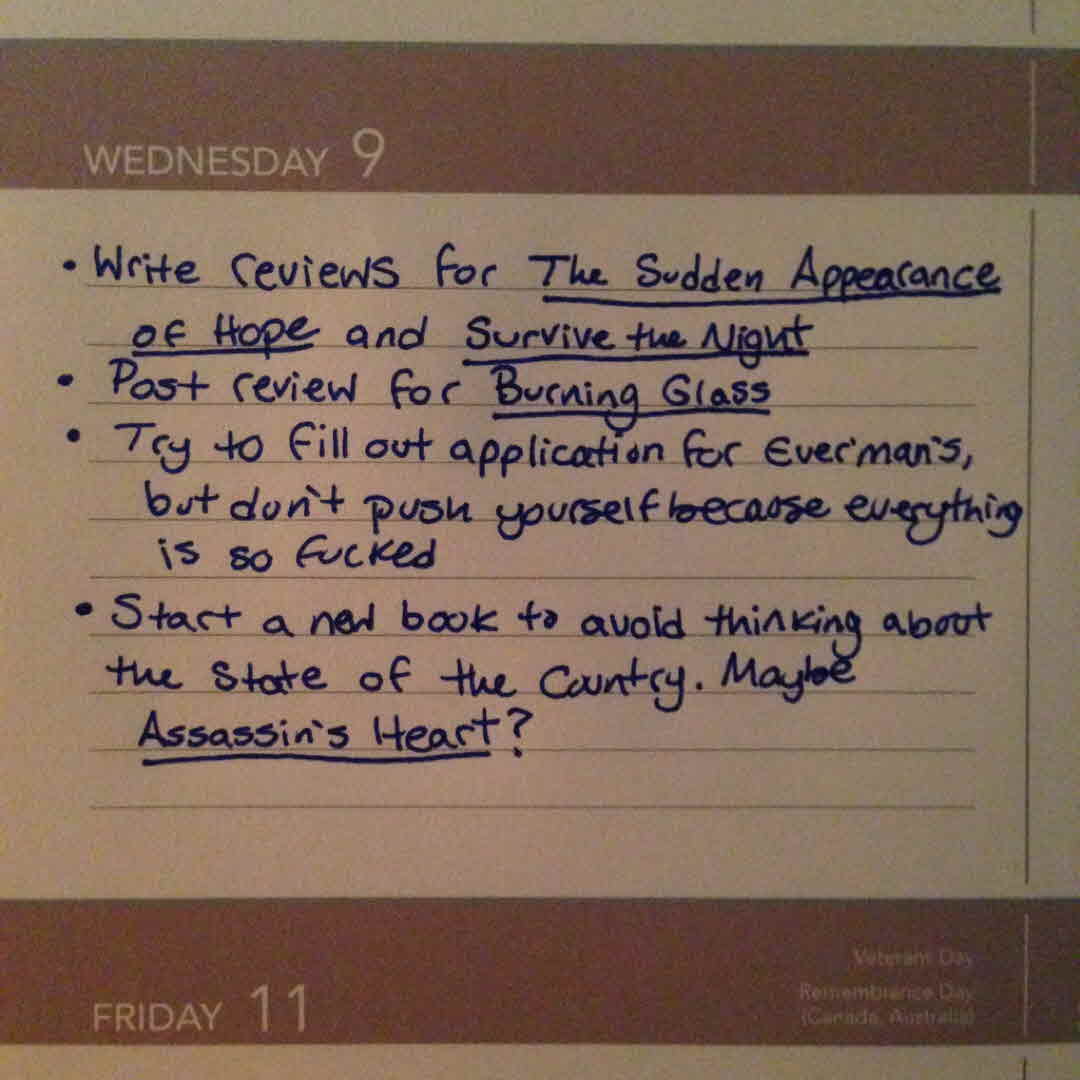 WEDNESDAY 9
• Write reviews for The Sudden Appearance
of Hope and Survive the Night
• Post review for Burning Glass
• Try to fill out application for Ever'man's,
but don't push yourself because everything
is so fucked
• Start a new book to avoid thinking about
the State of the Country. Maybe
Assassin's Heart?
Veterans Day
Remembrance Day
(Canada, Australia)
FRIDAY 11